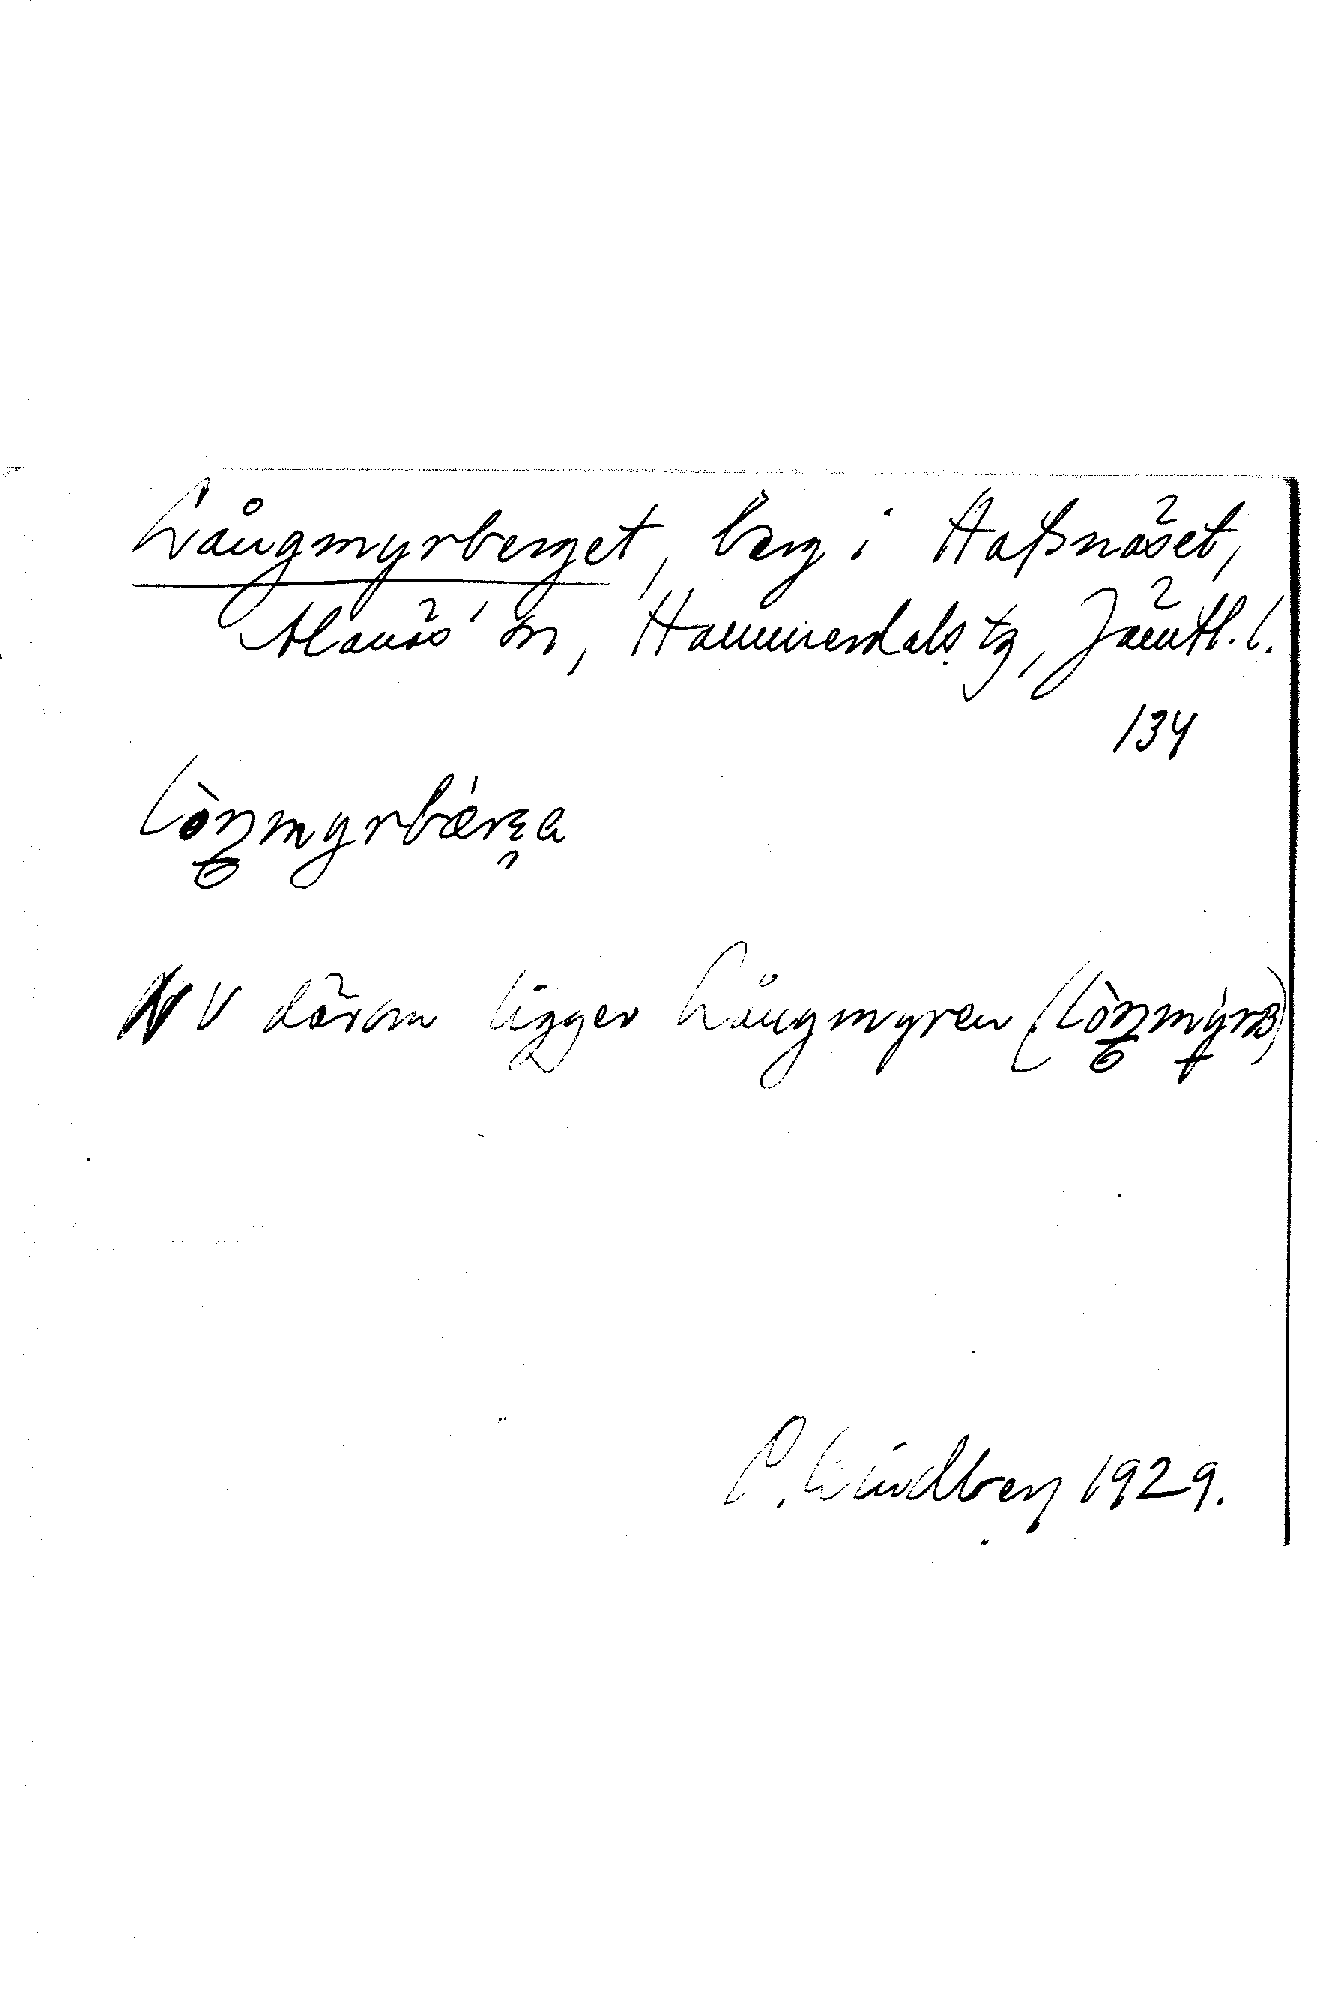 Långmyrberget, berg i Hassnäset,
Alanäs sn, Hammerdals tg, Jämtl. l.
134
NV därom ligger Långmyren
P. Lindberg 1929.